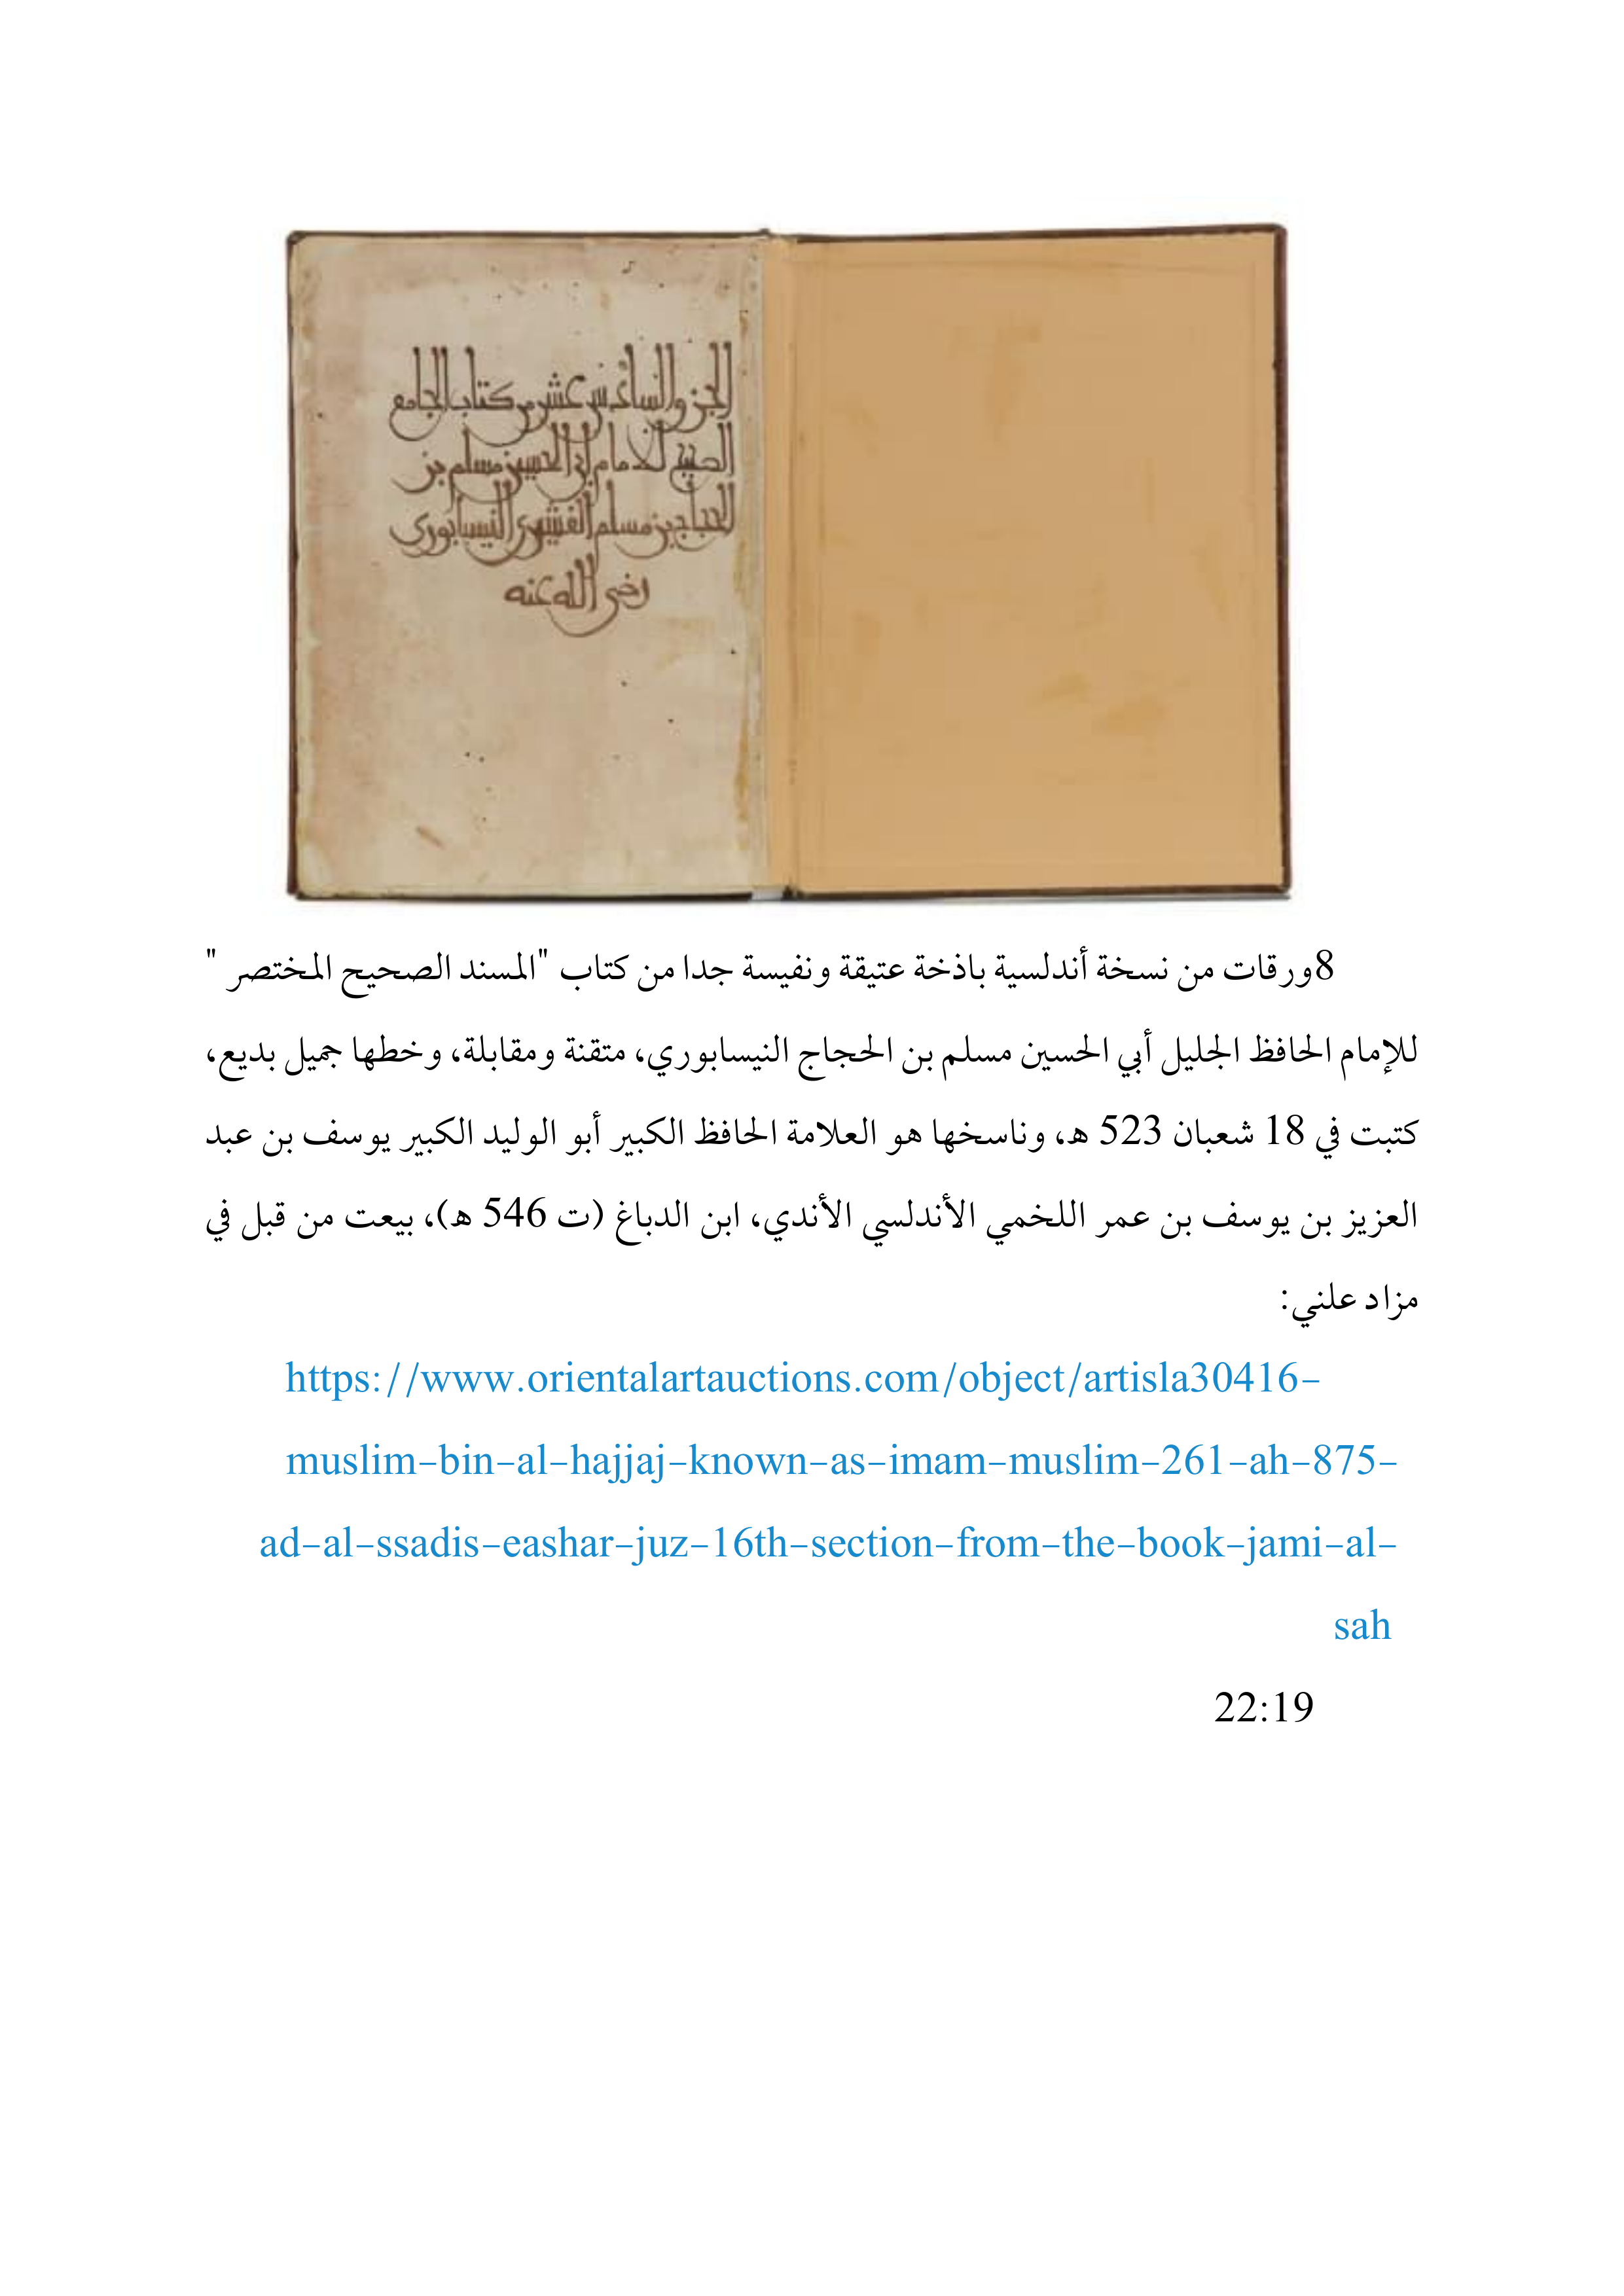 الجزو السادس عشر من كتاب الجامع
الصحيح للامام ابي الحسين مسلم بن
الحجاج بن مسلم القشيري النيسابوري
رضي الله عنه
8ورقات من نسخة أندلسية باذخة عتيقة ونفيسة جدا من كتاب "المسند الصحيح المختصر "
للإمام الحافظ الجليل أبي الحسين مسلم بن الحجاج النيسابوري، متقنة ومقابلة، وخطها جميل بديع،
كتبت في 18 شعبان 523 ه، وناسخها هو العلامة الحافظ الكبير أبو الوليد الكبير يوسف بن عبد
العزيز بن يوسف بن عمر اللخمي الأندلسي الأندي، ابن الدباغ (ت 546 ه)، بيعت من قبل في
مزاد علني:
https://www.orientalartauctions.com/object/artisla30416-
muslim-bin-al-hajjaj-known-as-imam-muslim-261-ah-875-
ad-al-ssadis-eashar-juz-16th-section-from-the-book-jami-al-
sah
22:19